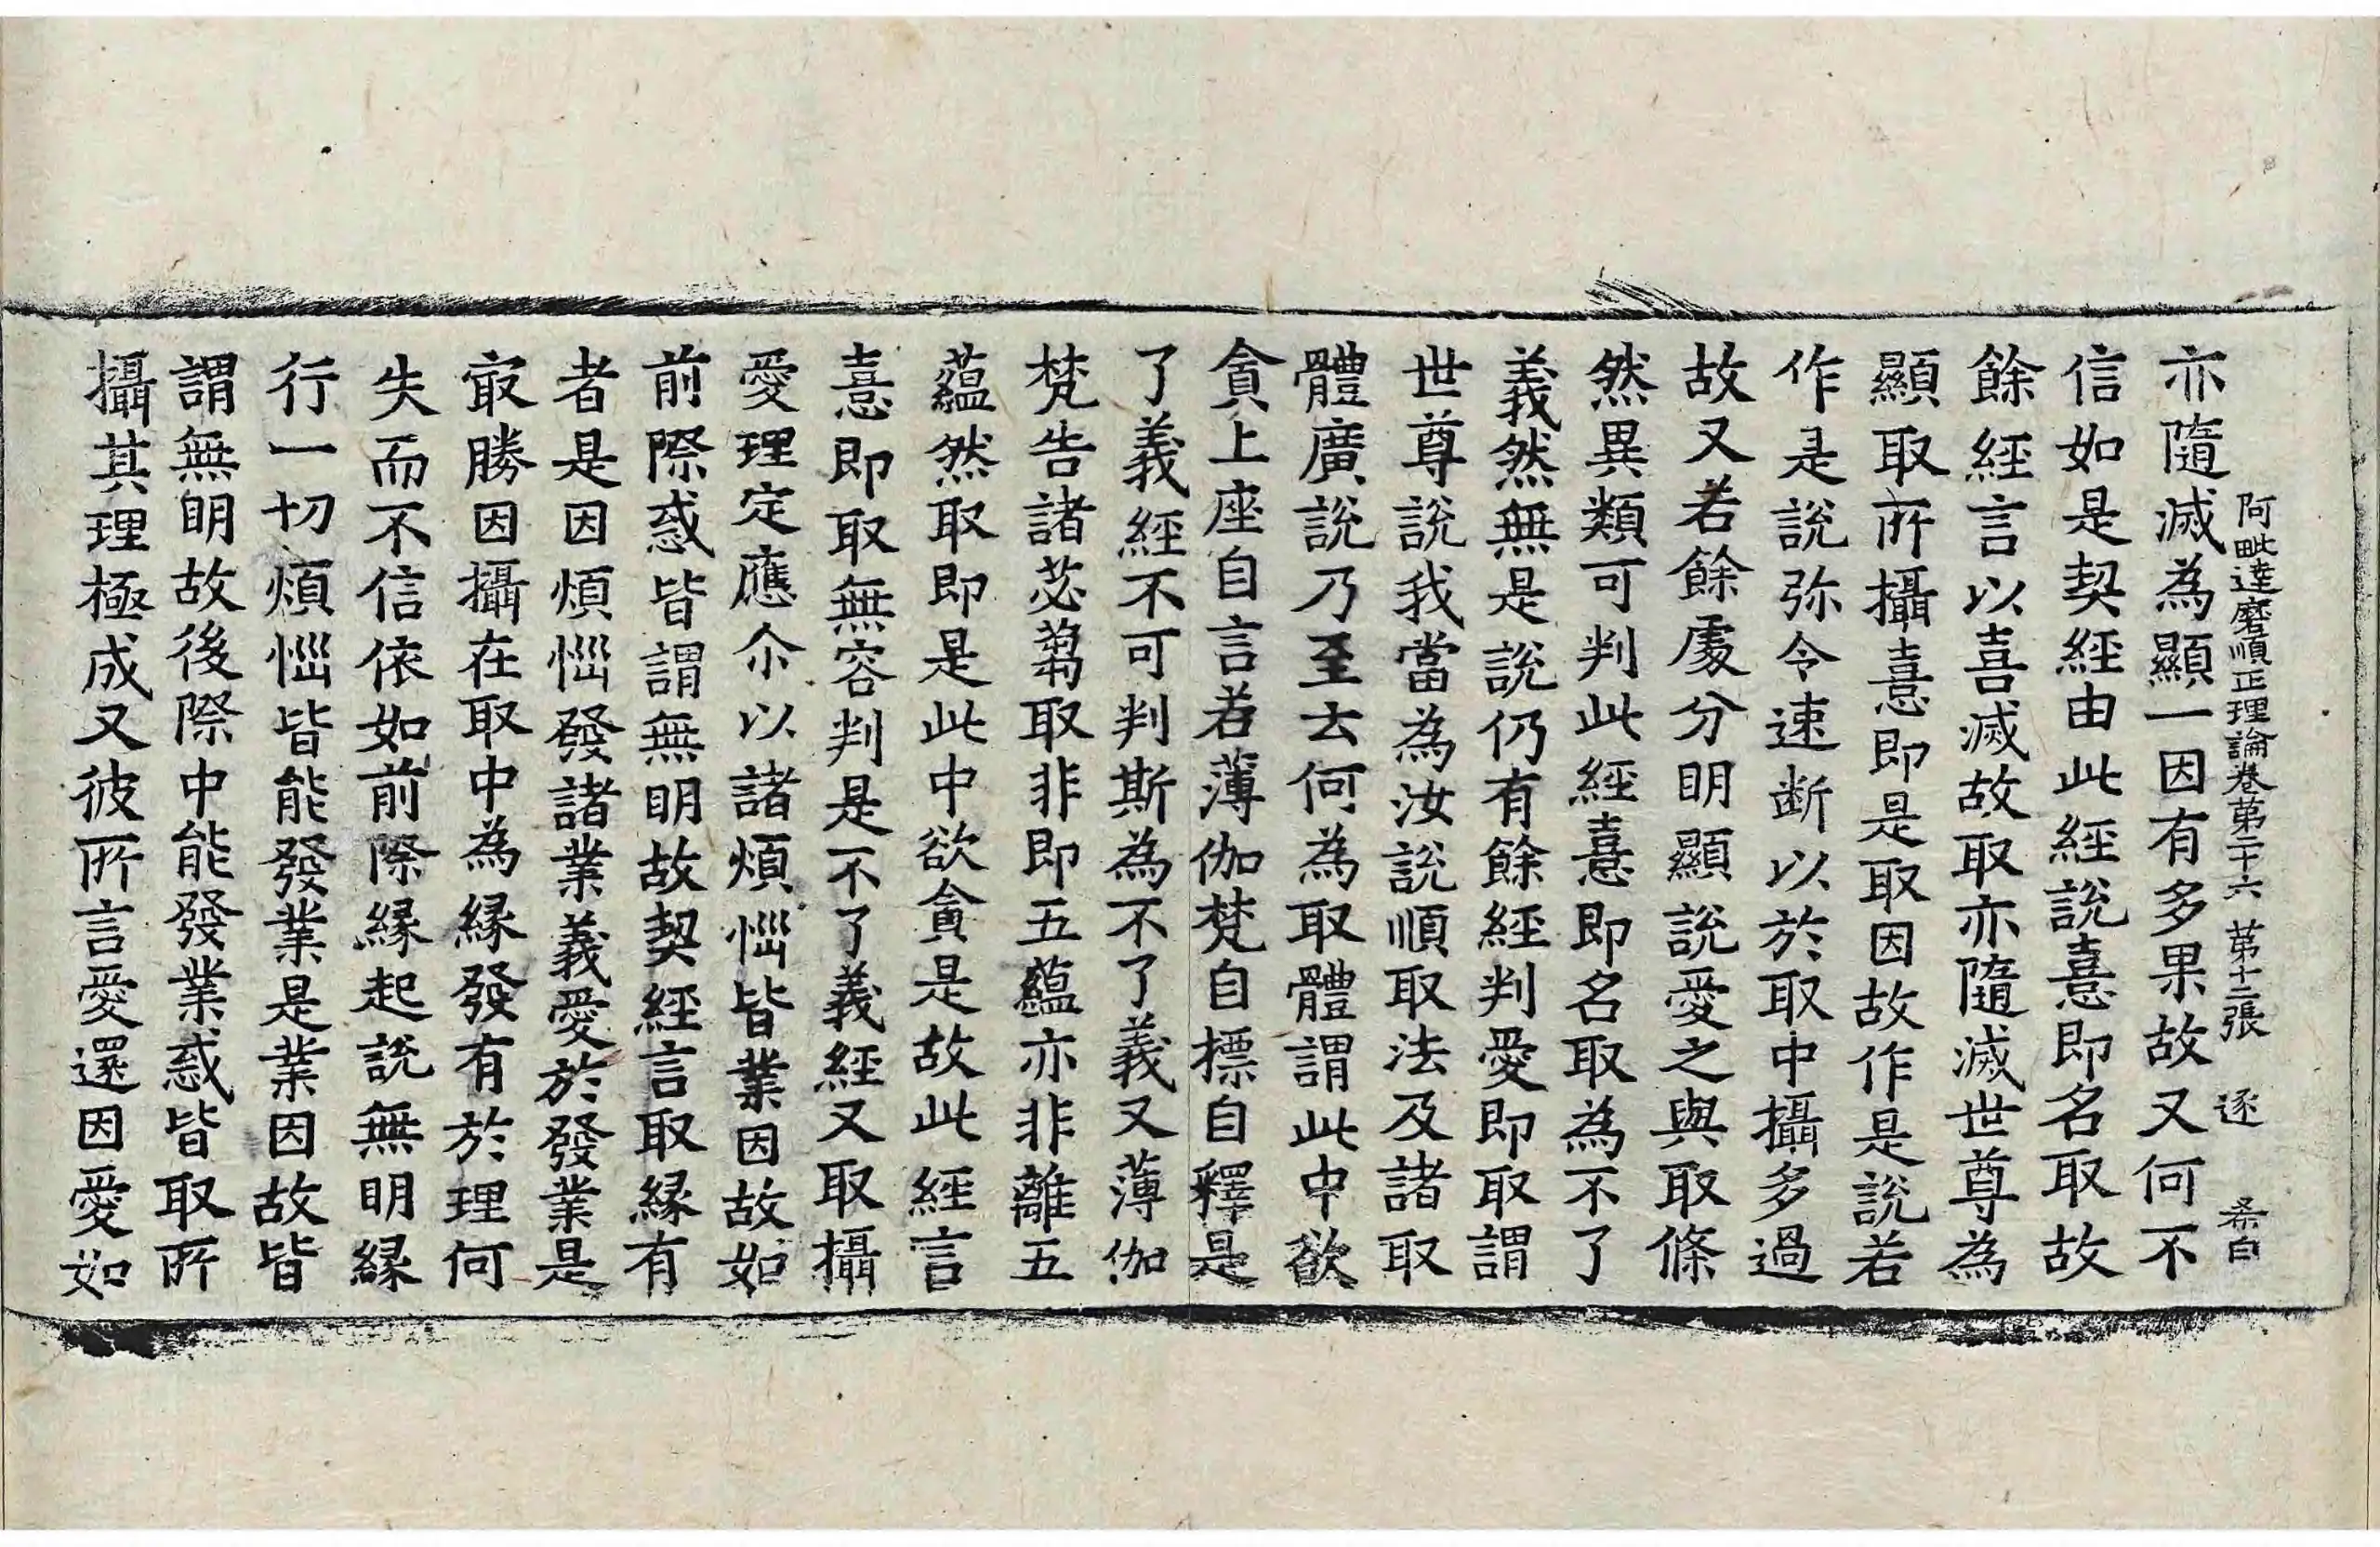 阿毗達磨順正理論卷第二十六 第十二張 逐 希白
亦隨滅為顯一因有多果故又何不
信如是契經由此經說憙即名取故
餘經言以喜滅故取亦隨滅世尊為
顯取所攝憙即是取因故作是說若
作是說弥令速断以於取中攝多過
故又若餘處分明顯說愛之與取條
然異類可判此經憙即名取為不了
義然無是說仍有餘經判愛即取謂
世尊說我當為汝說順取法及諸取
體廣說乃至云何為取體謂此中欲
貪上座自言若薄伽梵自標自釋是
了義經不可判斯為不了義又薄伽
梵告諸苾蒭取非即五蘊亦非離五
蘊然取即是此中欲貪是故此經言
憙即取無容判是不了義經又取攝
愛理定應尒以諸煩惱皆業因故如
前際惑皆謂無明故契經言取緣有
者是因煩惱發諸業義愛於發業是
㝡勝因攝在取中為緣發有於理何
失而不信依如前際緣起說無明緣
行一切煩惱皆能發業是業因故皆
謂無明故後際中能發業惑皆取所
攝其理極成又彼所言愛還因愛如